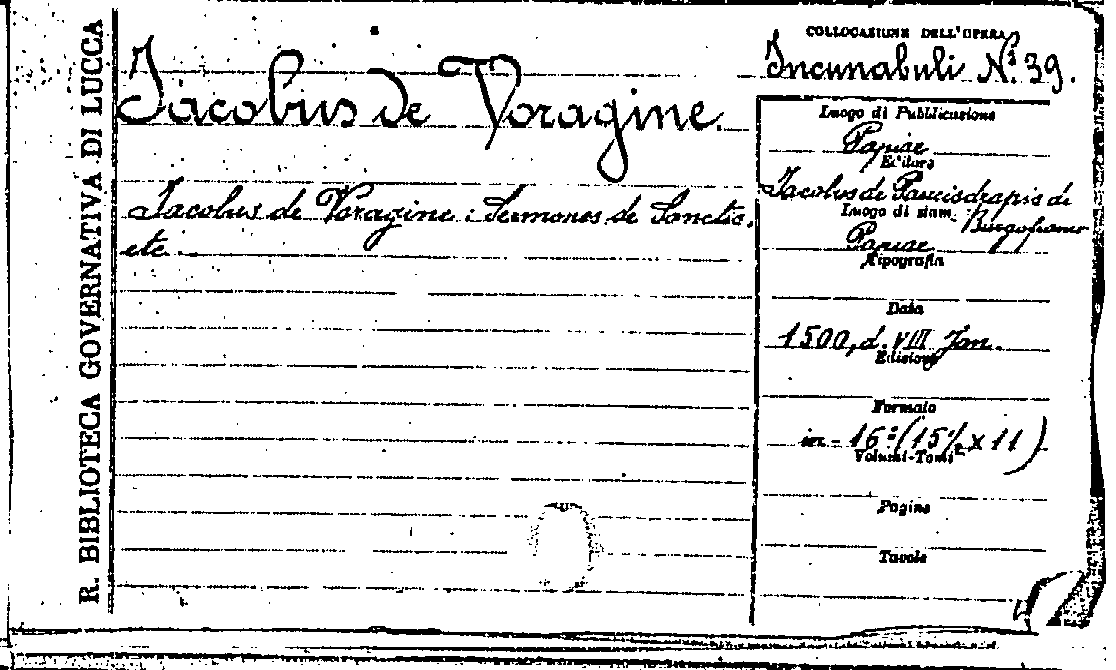 R. BIBLIOTECA GOVERNATIVA DI LUCCA
Jacobus de Voragine.
Jacobus de Voragine: Sermones de Sanctis.
etc.
COLLOCAZIONE DELL'OPERA
Incunabuli N.º 39.
Luogo di Pubblicazione
Papiae
Editore
Jacobus de Paucisdrapis de
Burgofranco
Luogo di stam.
Papiae
Tipografia
Data
1500, d. VIII Jan.
Edizione
Formato
in-16º (15½ x 11)
Volumi-Tomi
Pagine
Tavole